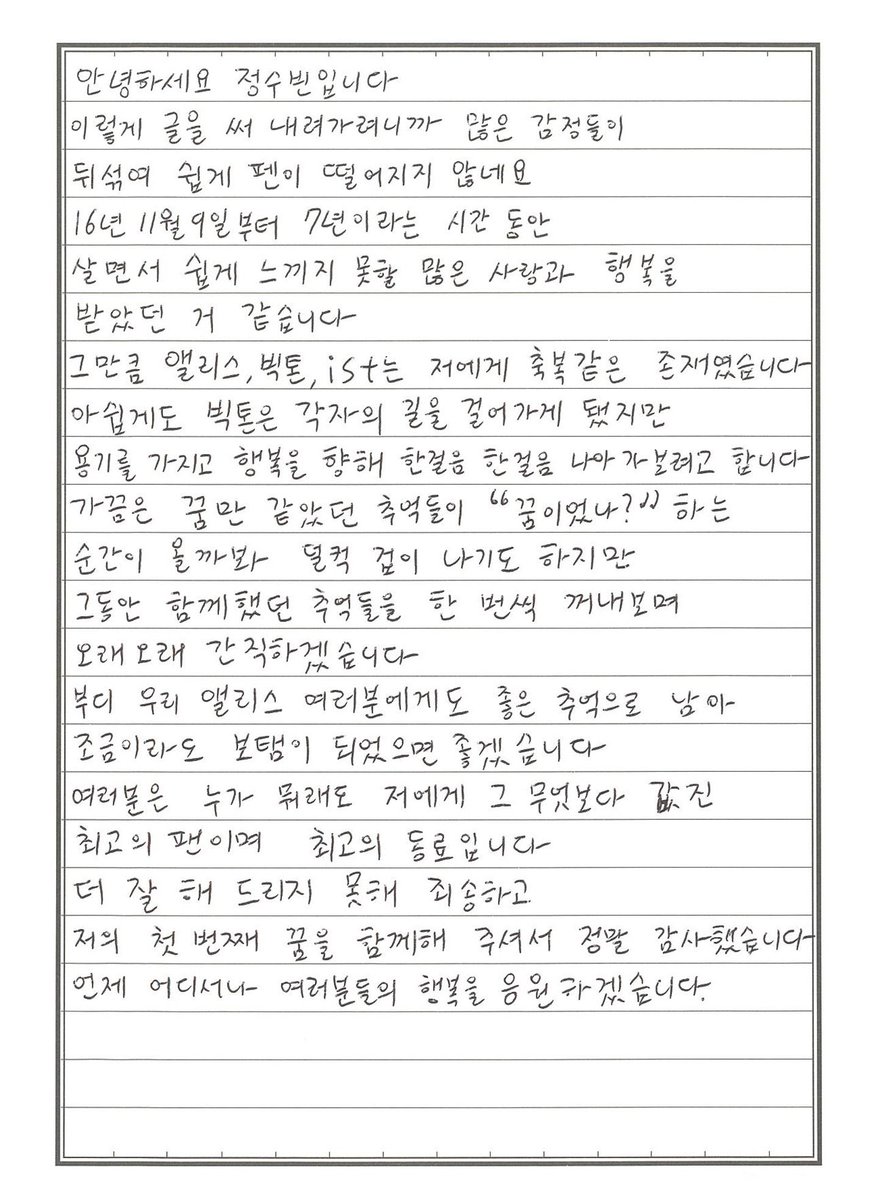 안녕하세요 정수빈입니다
이렇게 글을 써 내려가려니까 많은 감정들이
뒤섞여 쉽게 펜이 떨어지지 않네요
16년 11월 9일부터 7년이라는 시간 동안
살면서 쉽게 느끼지 못할 많은 사랑과 행복을
받았던 거 같습니다
그만큼 앨리스, 빅톤, ist는 저에게 축복같은 존재였습니다
아쉽게도 빅톤은 각자의 길을 걸어가게 됐지만
용기를 가지고 행복을 향해 한걸음 한걸음 나아가보려고 합니다
가끔은 꿈만 같았던 추억들이 “꿈이었나?” 하는
순간이 올까봐 덜컥 겁이 나기도 하지만
그동안 함께했던 추억들을 한 번씩 꺼내보며
오래오래 간직하겠습니다
부디 우리 앨리스 여러분에게도 좋은 추억으로 남아
조금이라도 보탬이 되었으면 좋겠습니다
여러분은 누가 뭐래도 저에게 그 무엇보다 값진
최고의 팬이며 최고의 동료입니다
더 잘 해 드리지 못해 죄송하고
저의 첫 번째 꿈을 함께해 주셔서 정말 감사했습니다
언제 어디서나 여러분들의 행복을 응원하겠습니다.